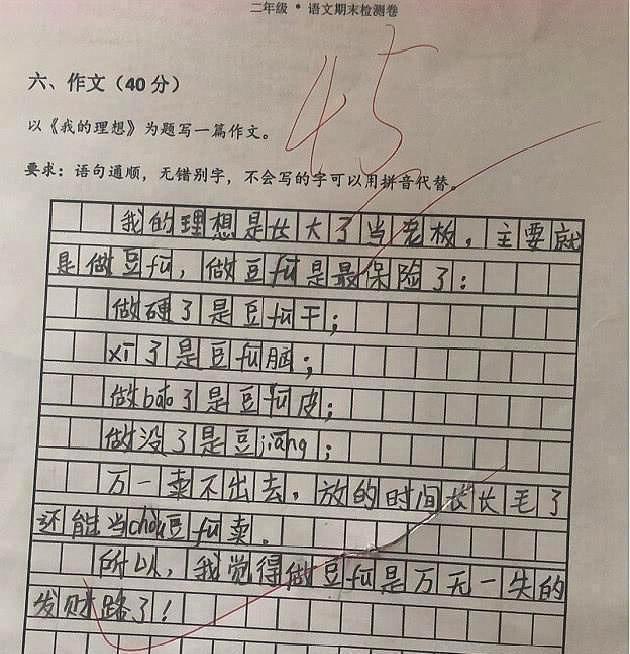 二年级 * 语文期末检测卷
45
六、作文（40分）
以《我的理想》为题写一篇作文。
要求：语句通顺，无错别字，不会写的字可以用拼音代替。
我的理想是长大了当老板，主要就
是做豆fu，做豆fu是最保险了：
做硬了是豆fu干；
xī了是豆fu脑；
做báo了是豆fu皮；
做没了是豆jiāng；
万一卖不出去，放的时间长长毛了
还能当chòu豆fu卖。
所以，我觉得做豆fu是万无一失的
发财路了！